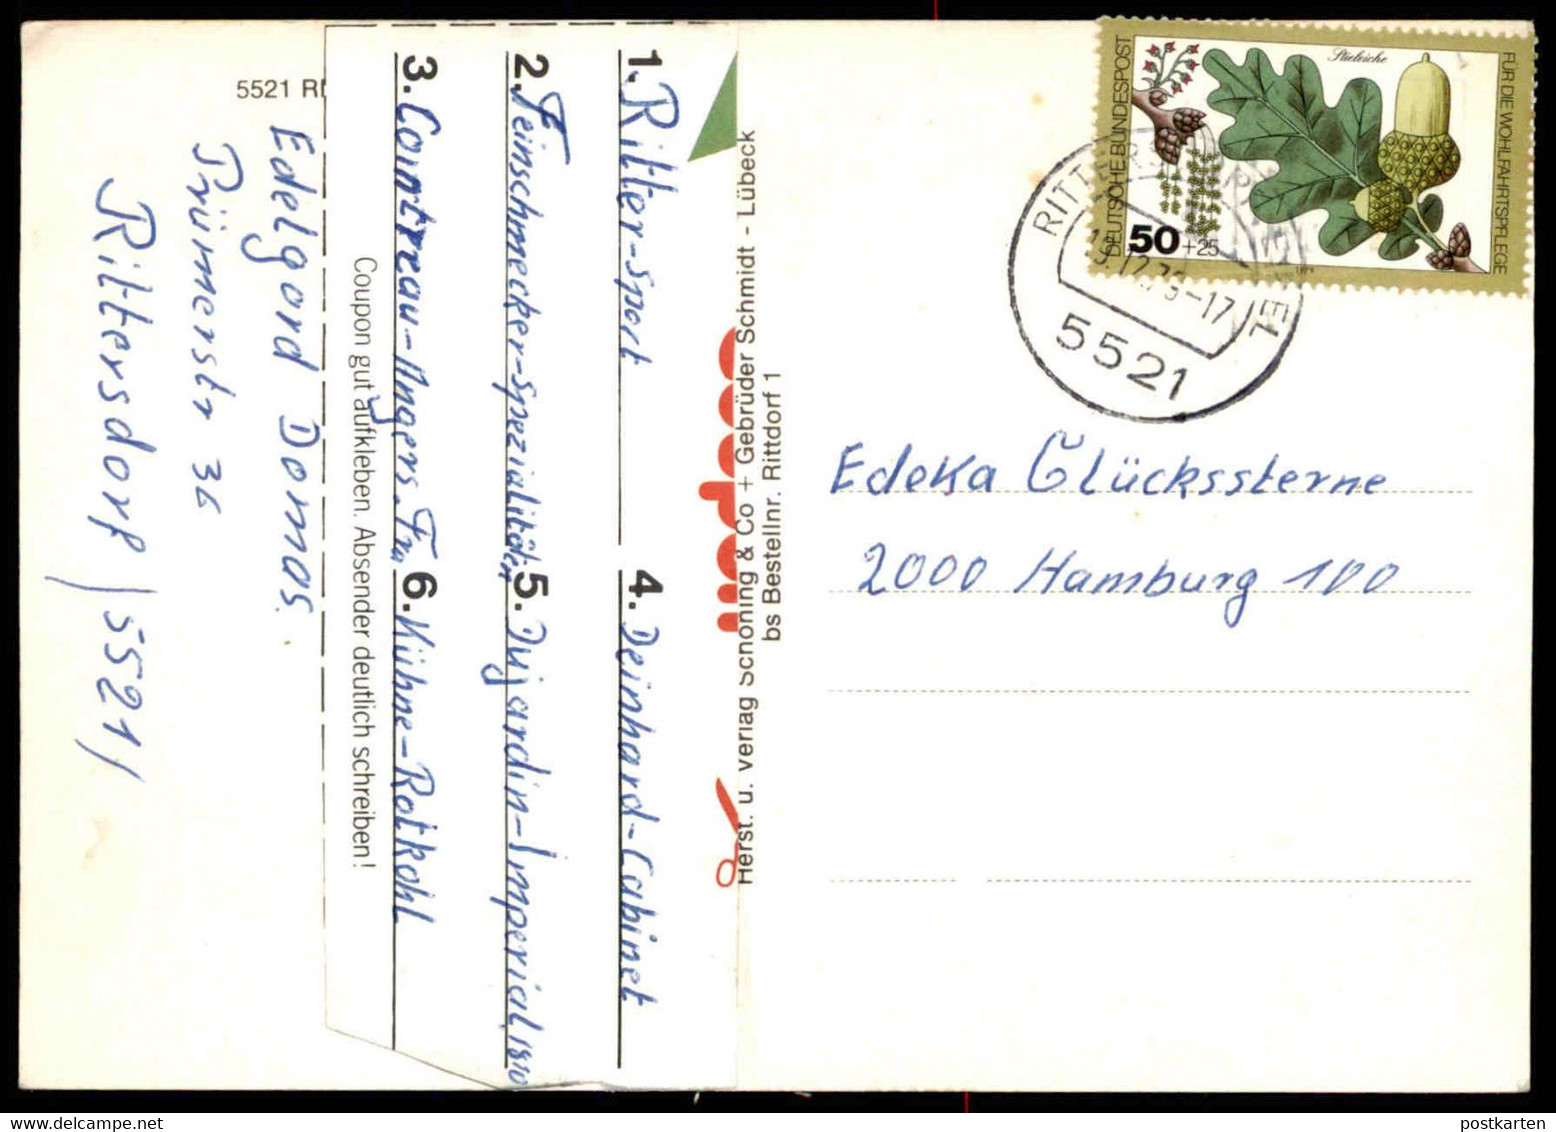 5521 RI
Edelgord Domas
Prümerstr 36
Rittersdorf / 5521 /
1. Ritter-Sport
2. Feinschmecker-Spezialitäten
3. Contreau-Angers. Fra
4. Deinhard-Cabinet
5. Dujardin-Imperial, 1810
6. Kühne-Rotkohl
Coupon gut aufkleben. Absender deutlich schreiben!
Herst. u. Verlag Schöning & Co + Gebrüder Schmidt - Lübeck
bs Bestellnr. Rittdorf 1
DEUTSCHE BUNDESPOST
Stieleiche
FÜR DIE WOHLFAHRTSPFLEGE
50 +25
1979
19.12.79-17
5521
Edeka Glückssterne
2000 Hamburg 100
postkarten